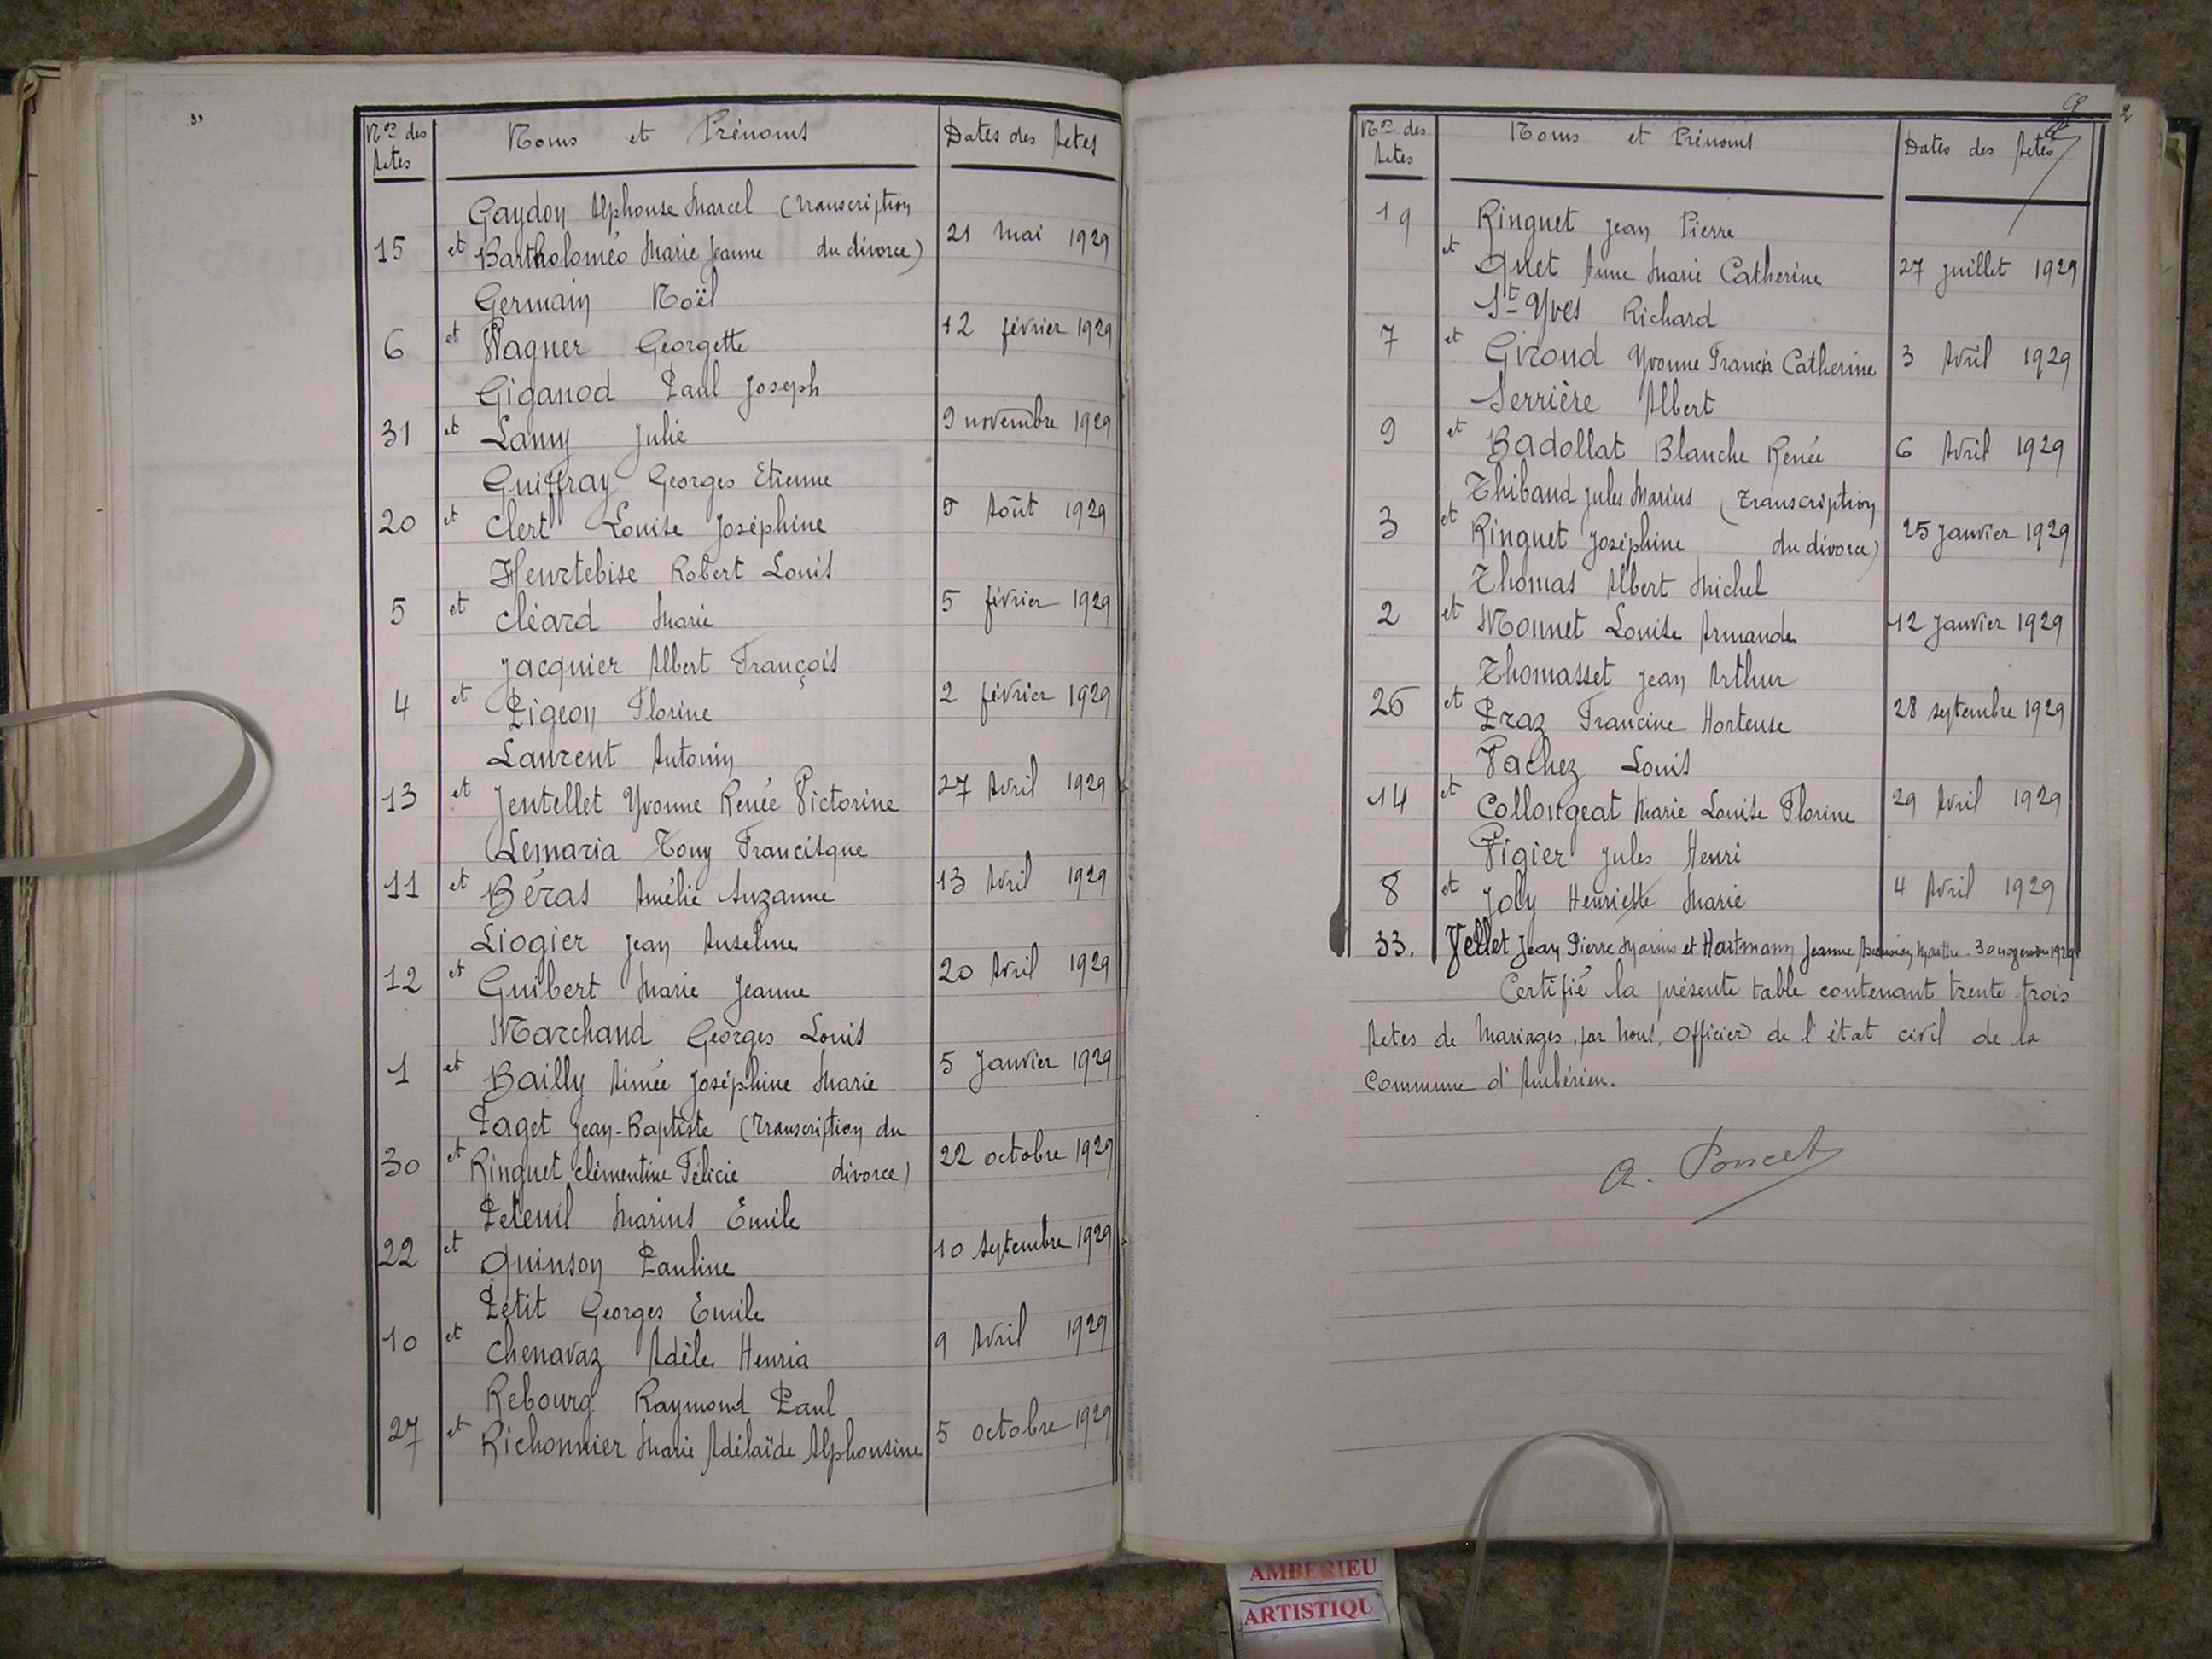 Nos des Actes
Noms et Prénoms
Dates des Actes
Gaydon Alphonse Marcel (Transcription
15 et Bartholoméo Marie Jeanne du divorce) 21 Mai 1929
Germain Noël
6 et Wagner Georgette 12 février 1929
Giganod Paul Joseph
31 et Lamy Julie 9 novembre 1929
Guiffray Georges Etienne
20 et Clert Louise Joséphine 5 Août 1929
Heurtebise Robert Louis
5 et Cléard Marie 5 février 1929
Jacquier Albert François
4 et Pigeon Florine 2 février 1929
Laurent Antonin
13 et Jentellet Yvonne Renée Victorine 27 Avril 1929
Lemaria Tony Francisque
11 et Béras Amélie Suzanne 13 Avril 1929
Liogier Jean Anselme
12 et Guibert Marie Jeanne 20 Avril 1929
Marchand Georges Louis
1 et Bailly Aimée Joséphine Marie 5 Janvier 1929
Paget Jean-Baptiste (Transcription du
30 et Ringuet Clémentine Félicie divorce) 22 octobre 1929
Peteuil Marius Emile
22 et Quinson Pauline 10 Septembre 1929
Petit Georges Emile
10 et Chenavaz Adèle Henria 9 Avril 1929
Rebourg Raymond Paul
27 et Richonnier Marie Adélaïde Alphonsine 5 octobre 1929
2
Nos des Actes
Noms et Prénoms
Dates des Actes
19 Ringuet Jean Pierre
et Quet Anne Marie Catherine 27 Juillet 1929
St Yves Richard
7 et Giroud Yvonne Francia Catherine 3 Avril 1929
Serrière Albert
9 et Badollat Blanche Renée 6 Avril 1929
Thibaud Jules Marius (Transcription
3 et Ringuet Joséphine du divorce) 25 Janvier 1929
Thomas Albert Michel
2 et Monnet Louise Armande 12 Janvier 1929
Thomasset Jean Arthur
26 et Praz Francine Hortense 28 septembre 1929
Vachez Louis
14 et Collongeat Marie Louise Florine 29 Avril 1929
Vigier Jules Henri
8 et Joly Henriette Marie 4 Avril 1929
33. Vellet Jean Pierre Marius et Hartmann Jeanne Marthe - 30 novembre 1929
Certifié la présente table contenant trente trois
Actes de Mariages, par nous, Officier de l'état civil de la
Commune d'Ambérieu.
A. Poncet
AMBERIEU
ARTISTIQU